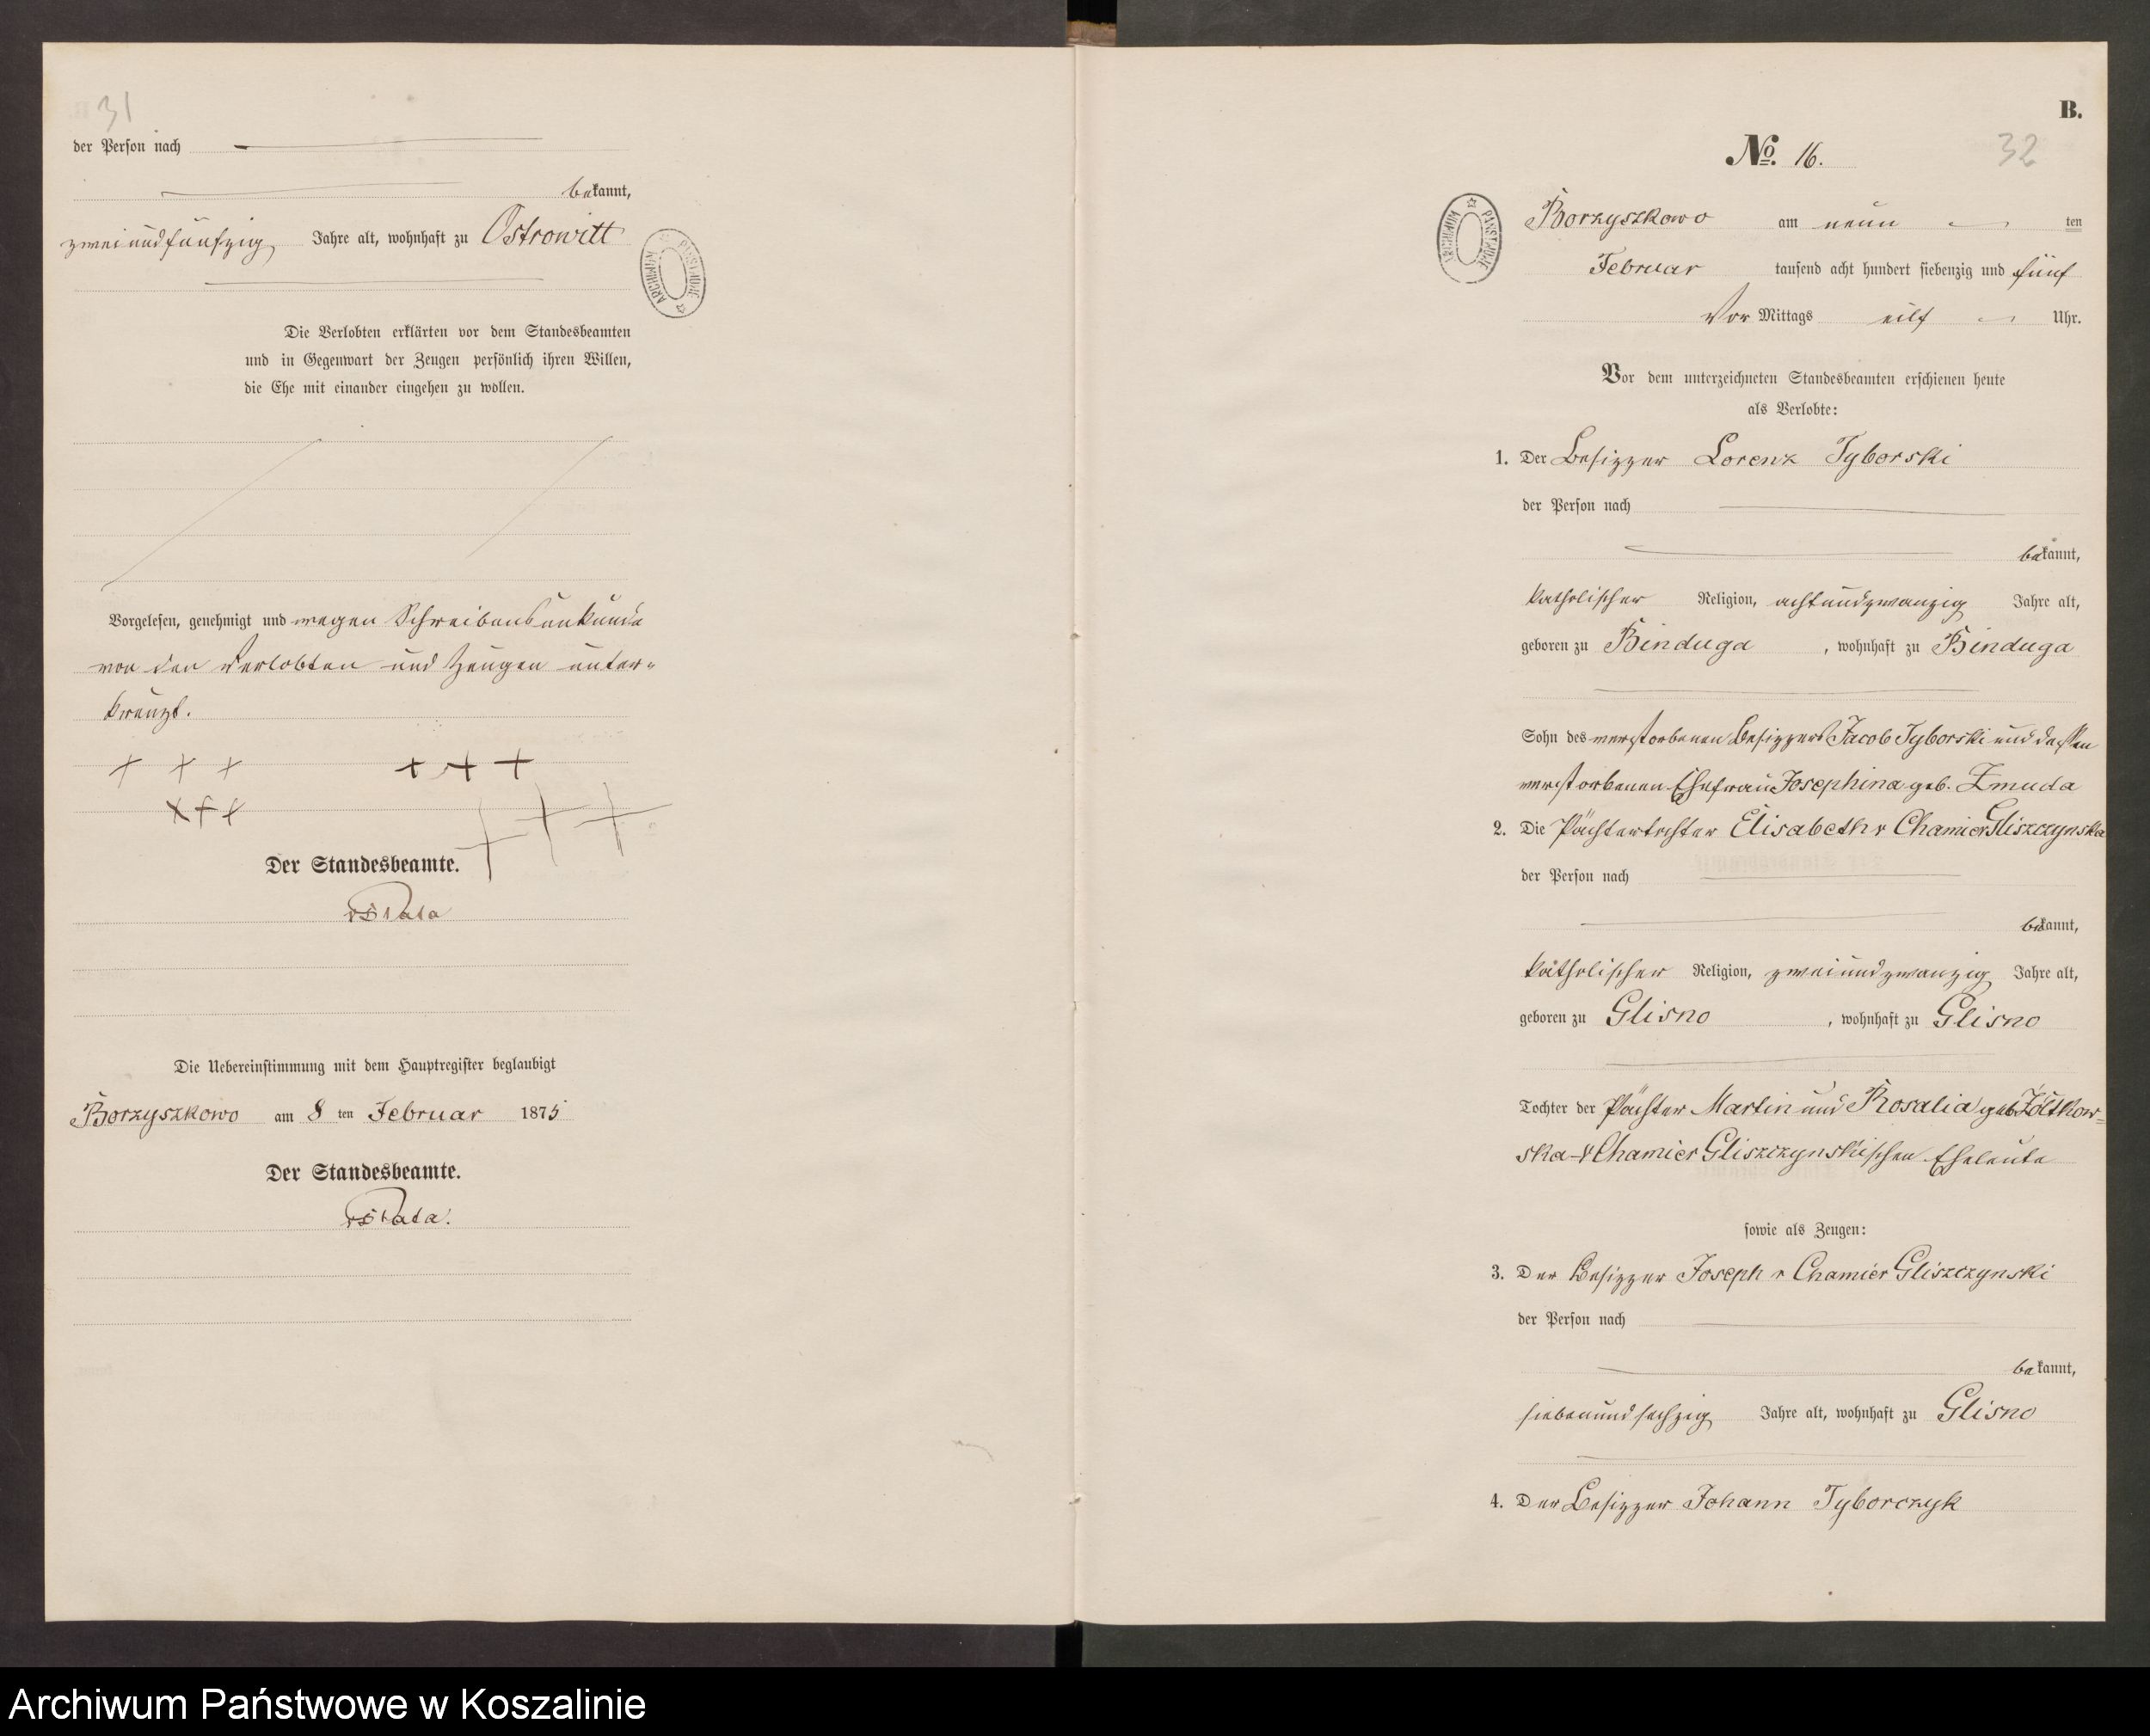 31
der Person nach
bekannt,
zweiundfünfzig Jahre alt, wohnhaft zu Ostrowitt
Die Verlobten erklärten vor dem Standesbeamten
und in Gegenwart der Zeugen persönlich ihren Willen,
die Ehe mit einander eingehen zu wollen.
Vorgelesen, genehmigt und wegen Schreibensunkunde
von den Verlobten und Zeugen unter-
kreuzt.
+ + + + + +
+ + + + + +
Der Standesbeamte.
Die Uebereinstimmung mit dem Hauptregister beglaubigt
Borzyszkowo am 8 ten Februar 1875
Der Standesbeamte.
ARCHIWUM PAŃSTWOWE
B.
No. 16. 32
Borzyszkowo am neun ten
Februar tausend acht hundert siebenzig und fünf
Vor Mittags eilf Uhr.
ARCHIWUM PAŃSTWOWE
Vor dem unterzeichneten Standesbeamten erschienen heute
als Verlobte:
1. Der Besitzer Lorenz Tyborski
der Person nach
bekannt,
katholischer Religion, achtundzwanzig Jahre alt,
geboren zu Binduga, wohnhaft zu Binduga
Sohn des verstorbenen Besitzers Jacob Tyborski und dessen
verstorbenen Ehefrau Josephina geb. Zmuda
2. Die Pächtertochter Elisabeth v Chamier Gliszczynska
der Person nach
bekannt,
katholischer Religion, zweiundzwanzig Jahre alt,
geboren zu Glisno, wohnhaft zu Glisno
Tochter der Pächter Martin und Rosalia geb Żółtkow-
ska - v Chamier Gliszczynskischen Eheleute
sowie als Zeugen:
3. Der Besitzer Joseph v Chamier Gliszczynski
der Person nach
bekannt,
siebenundsechzig Jahre alt, wohnhaft zu Glisno
4. Der Besitzer Johann Tyborczyk
Archiwum Państwowe w Koszalinie